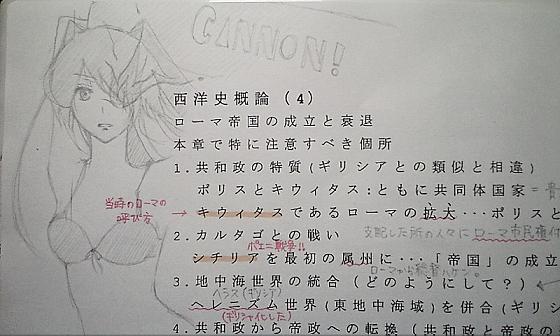 CANNON!
西洋史概論(4)
ローマ帝国の成立と衰退
本章で特に注意すべき個所
1.共和政の特質(ギリシアとの類似と相違)
ポリスとキウィタス:ともに共同体国家=貴
当時のローマの
呼び方
→キウィタスであるローマの拡大・・・ポリスと
2.カルタゴとの戦い
支配した所の人々にローマ市民権付
ポエニ戦争!!
シチリアを最初の属州に・・・「帝国」の成立
ローマから総督ハケン。
3.地中海世界の統合(どのようにして?)
ヘラス(ギリシア)
ヘレニズム世界(東地中海域)を併合(ギリ
(ギリシャ化した)
4.共和政から帝政への転換(共和政と帝政の